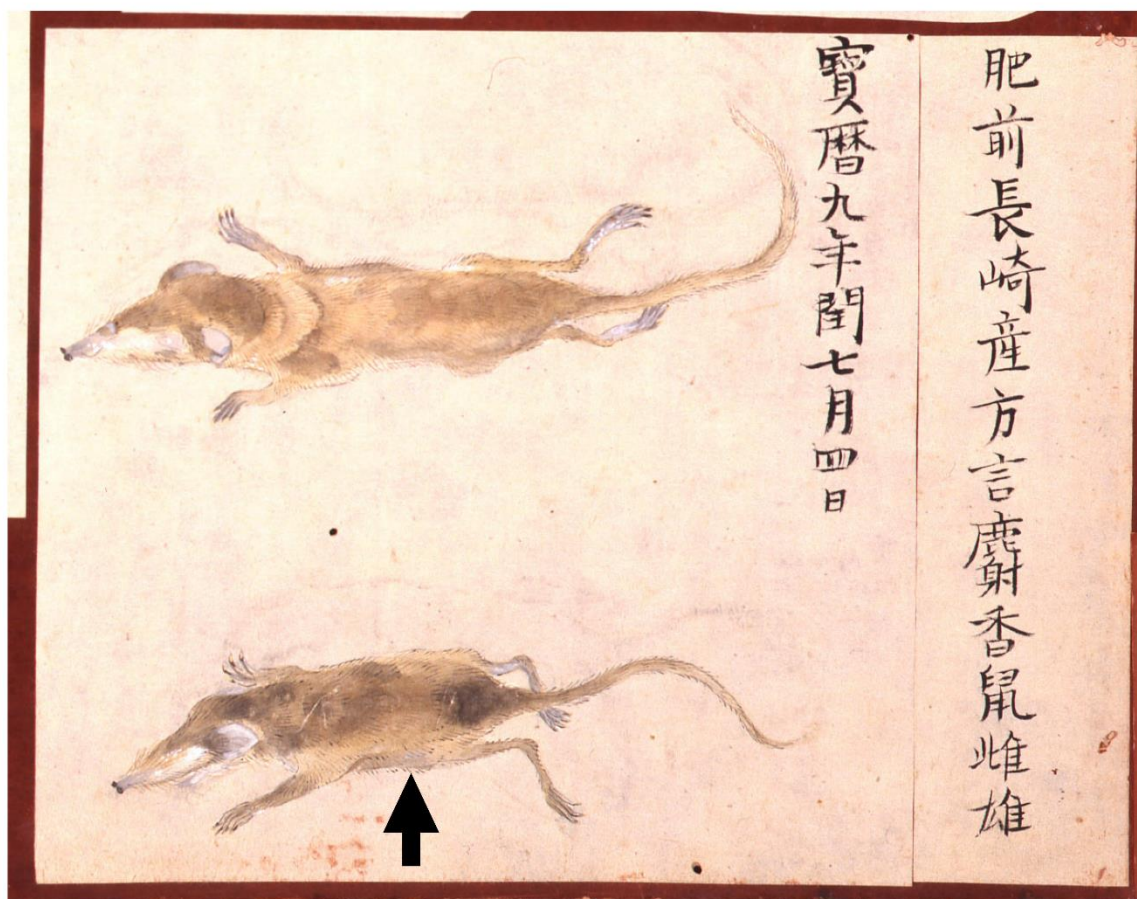 肥前長崎産方言麝香鼠雌雄
寳暦九年閏七月四日